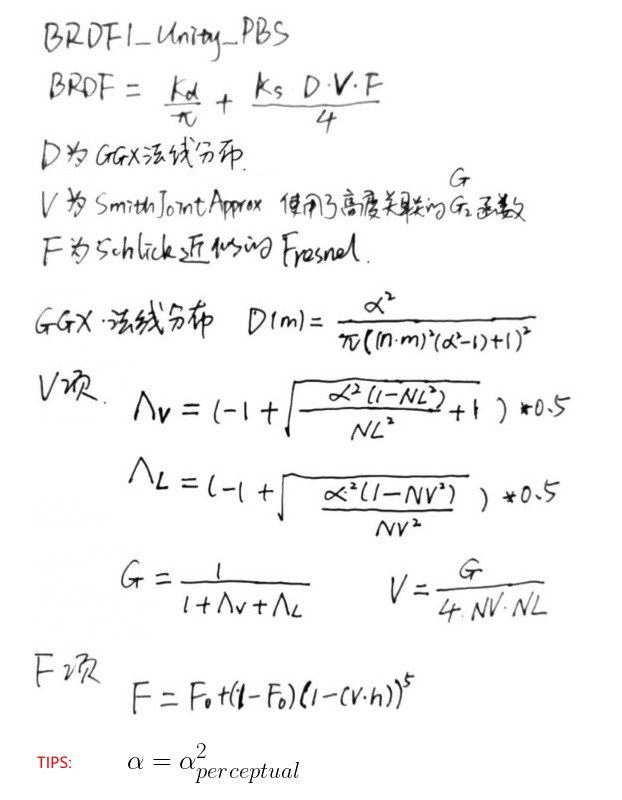 BRDF1_Unity_PBS
BRDF = Kd/π + Ks D·V·F/4
D为GGX法线分布.
V为SmithJointApprox 使用了高度关联的G₂函数 G
F为Schlick近似的Fresnel.
GGX·法线分布 D(m) = α²/π((n·m)²(α²-1)+1)²
V项. Λv = (-1 + √(α²(1-NL²)/NL² + 1)) *0.5
ΛL = (-1 + √(α²(1-NV²)/NV²)) *0.5
G = 1/(1+Λv+ΛL) V = G/(4·NV·NL)
F项
F = F₀+(1-F₀)(1-(v·h))⁵
TIPS: α = α²perceptual